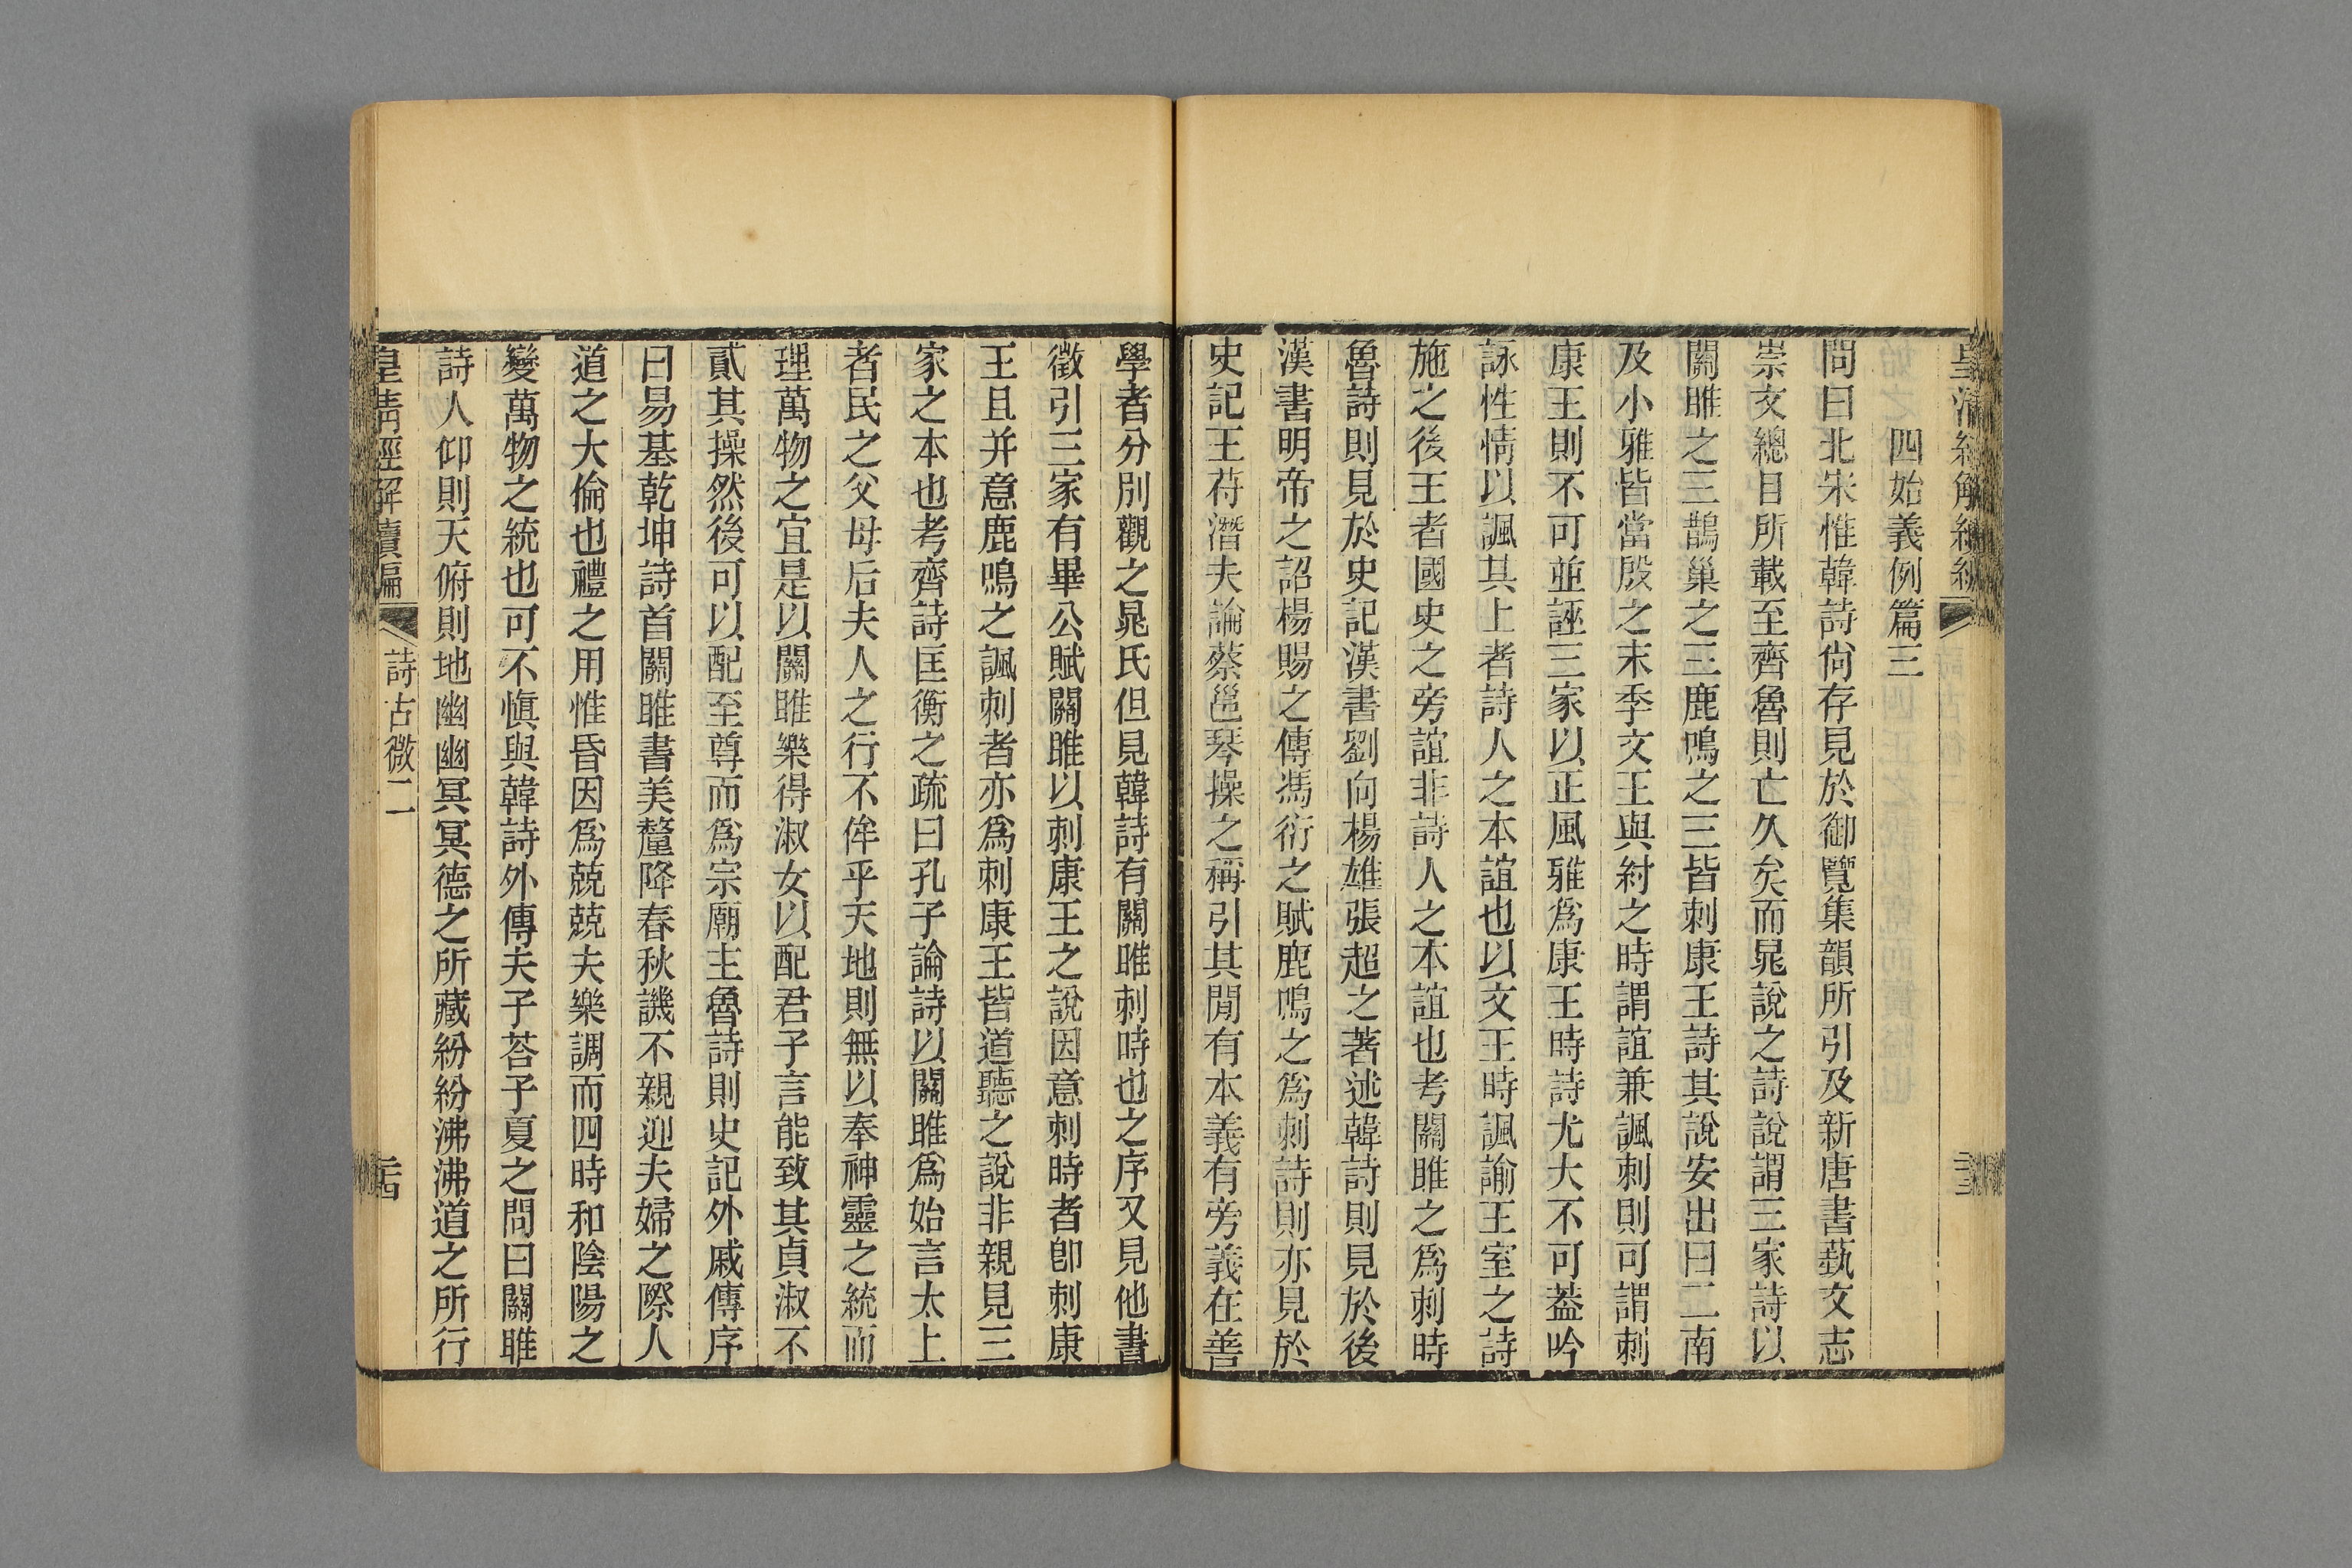 四始義例篇三
問曰北宋惟韓詩尙存見於御覽集韻所引及新唐書藝文志
崇文總目所載至齊魯則亡久矣而晁說之詩說謂三家詩以
關雎之三鵲巢之三鹿鳴之三皆刺康王詩其說安出曰二南
及小雅皆當殷之末季文王與紂之時謂誼兼諷刺則可謂刺
康王則不可並誣三家以正風雅爲康王時詩尤大不可葢吟
詠性情以諷其上者詩人之本誼也以文王時諷諭王室之詩
施之後王者國史之旁誼非詩人之本誼也考關雎之爲刺時
魯詩則見於史記漢書劉向楊雄張超之著述韓詩則見於後
漢書明帝之詔楊賜之傳馮衍之賦鹿鳴之爲刺詩則亦見於
史記王苻潛夫論蔡邕琴操之稱引其閒有本義有旁義在善
學者分別觀之晁氏但見韓詩有關雎刺時也之序又見他書
徵引三家有畢公賦關雎以刺康王之說因意刺時者卽刺康
王且并意鹿鳴之諷刺者亦爲刺康王皆道聽之說非親見三
家之本也考齊詩匡衡之疏曰孔子論詩以關雎爲始言太上
者民之父母后夫人之行不侔乎天地則無以奉神靈之統而
理萬物之宜是以關雎樂得淑女以配君子言能致其貞淑不
貳其操然後可以配至尊而爲宗廟主魯詩則史記外戚傳序
曰易基乾坤詩首關雎書美釐降春秋譏不親迎夫婦之際人
道之大倫也禮之用惟昏因爲兢兢夫樂調而四時和陰陽之
變萬物之統也可不愼與韓詩外傳夫子荅子夏之問曰關雎
詩人仰則天俯則地幽幽冥冥德之所藏紛紛沸沸道之所行
皇淸經解續編
詩古微二
二十四